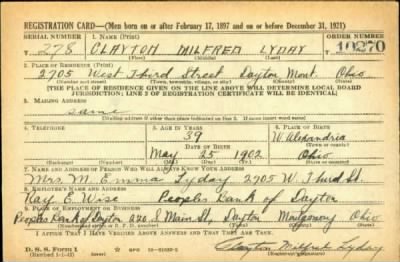 REGISTRATION CARD—(Men born on or after February 17, 1897 and on or before December 31, 1921)
SERIAL NUMBER 1. NAME (Print) ORDER NUMBER
T 278 CLAYTON MILFRED LYDAY 10270
(First) (Middle) (Last)
2. PLACE OF RESIDENCE (Print)
2705 West Third Street, Dayton Mont. Ohio
(Number and street) (Town, township, village, or city) (County) (State)
[THE PLACE OF RESIDENCE GIVEN ON THE LINE ABOVE WILL DETERMINE LOCAL BOARD
JURISDICTION; LINE 2 OF REGISTRATION CERTIFICATE WILL BE IDENTICAL]
3. MAILING ADDRESS
Same
[Mailing address if other than place indicated on line 2. If same insert word same]
4. TELEPHONE 5. AGE IN YEARS 6. PLACE OF BIRTH
39 W. Alexandria
DATE OF BIRTH
May 25 1902 Ohio
7. NAME AND ADDRESS OF PERSON WHO WILL ALWAYS KNOW YOUR ADDRESS
Mrs M. Emma Lyday 2705 W. Third St.
8. EMPLOYER'S NAME AND ADDRESS
Ray E. Wise Peoples Bank of Dayton
9. PLACE OF EMPLOYMENT OR BUSINESS
Peoples Bank of Dayton S. Main St., Dayton Montgomery Ohio
I AFFIRM THAT I HAVE VERIFIED ABOVE ANSWERS AND THAT THEY ARE TRUE.
D. S. S. Form 1 Clayton Milfred Lyday